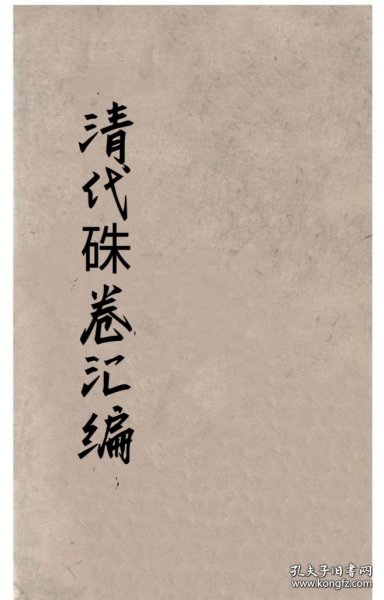 清代硃卷汇编
孔夫子旧书网
www.kongfz.com